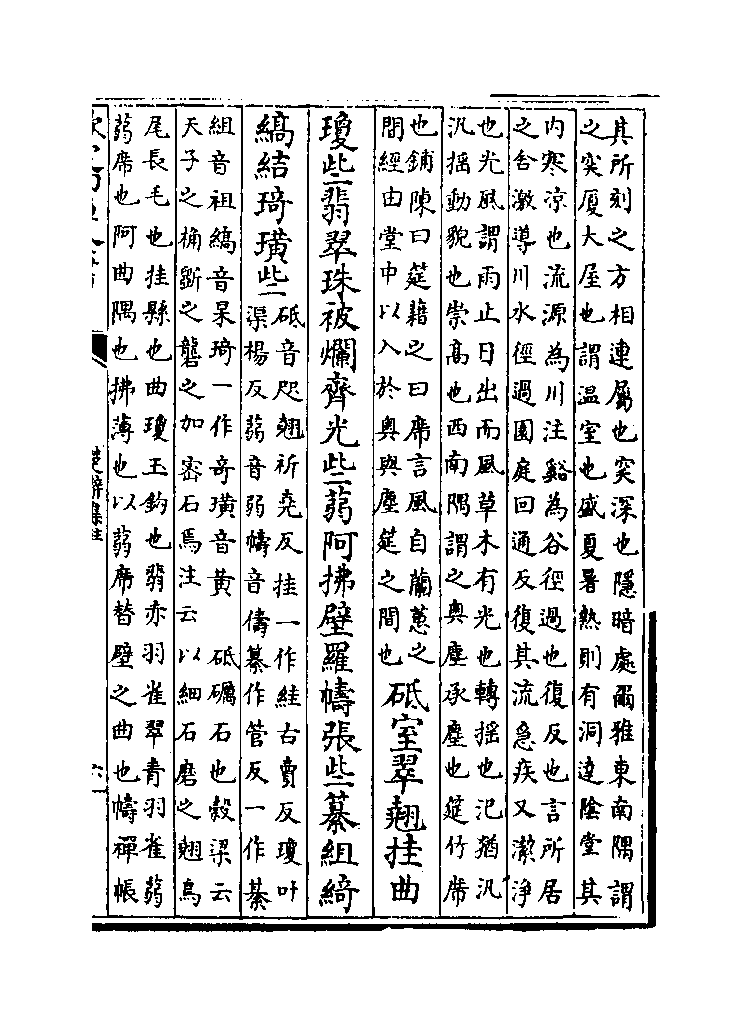 其所刻之方相連屬也突深也隱暗處爾雅東南隅謂
之突厦大屋也謂温室也盛夏暑熱則有洞達陰堂其
内寒凉也流源為川注谿為谷徑過也復反也言所居
之舍激導川水徑過園庭回通反復其流急疾又潔淨
也光風謂雨止日出而風草木有光也轉揺也氾猶汎
汎揺動貌也崇高也西南隅謂之奥塵承塵也筵竹席
也鋪陳曰筵藉之曰席言風自蘭蕙之
間經由堂中以入於奥與塵筵之間也
砥室翠翹挂曲
瓊些翡翠珠被爛齊光些蒻阿拂壁羅幬張些纂組綺
縞結琦璜些
砥音咫翹祈堯反挂一作絓古賣反瓊叶
渠楊反蒻音弱幬音儔纂作管反一作綦
組音祖縞音杲琦一作奇璜音黄 砥礪石也穀梁云
天子之桷斵之礱之加密石焉注云以細石磨之翹鳥
尾長毛也挂縣也曲瓊玉鉤也翡赤羽雀翠青羽雀蒻
蒻席也阿曲隅也拂薄也以蒻席替壁之曲也幬襌帳
楚辭集注